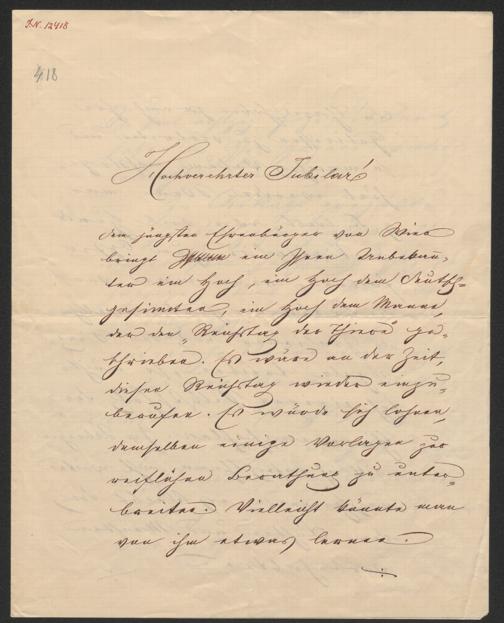 I.N. 12418
418
Hochverehrter Jubilar!
Dem jüngsten Ehrenbürger von Wien
bringt ein Ihnen Unbekann-
ter ein Hoch, ein Hoch dem deutsch-
gesinnten, ein Hoch dem Manne,
der den „Reichstag der Thiere" ge-
schrieben. Es wäre an der Zeit,
diesen Reichstag wieder einzu-
berufen. Es würde sich lohnen,
demselben einige Vorlagen zur
reiflichen Berathung zu unter-
breiten. Vielleicht könnte man
von ihm etwas lernen.